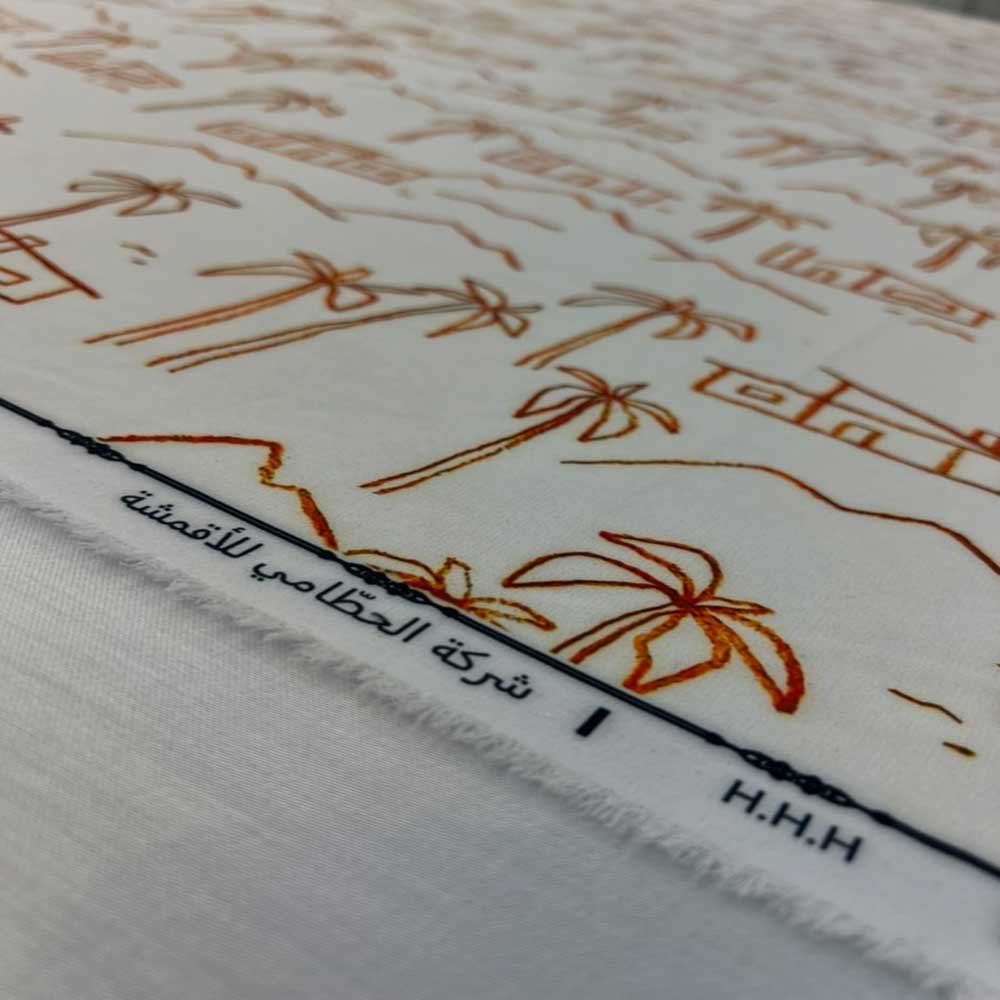 شركة الحظّامي للأقمشة | H.H.H